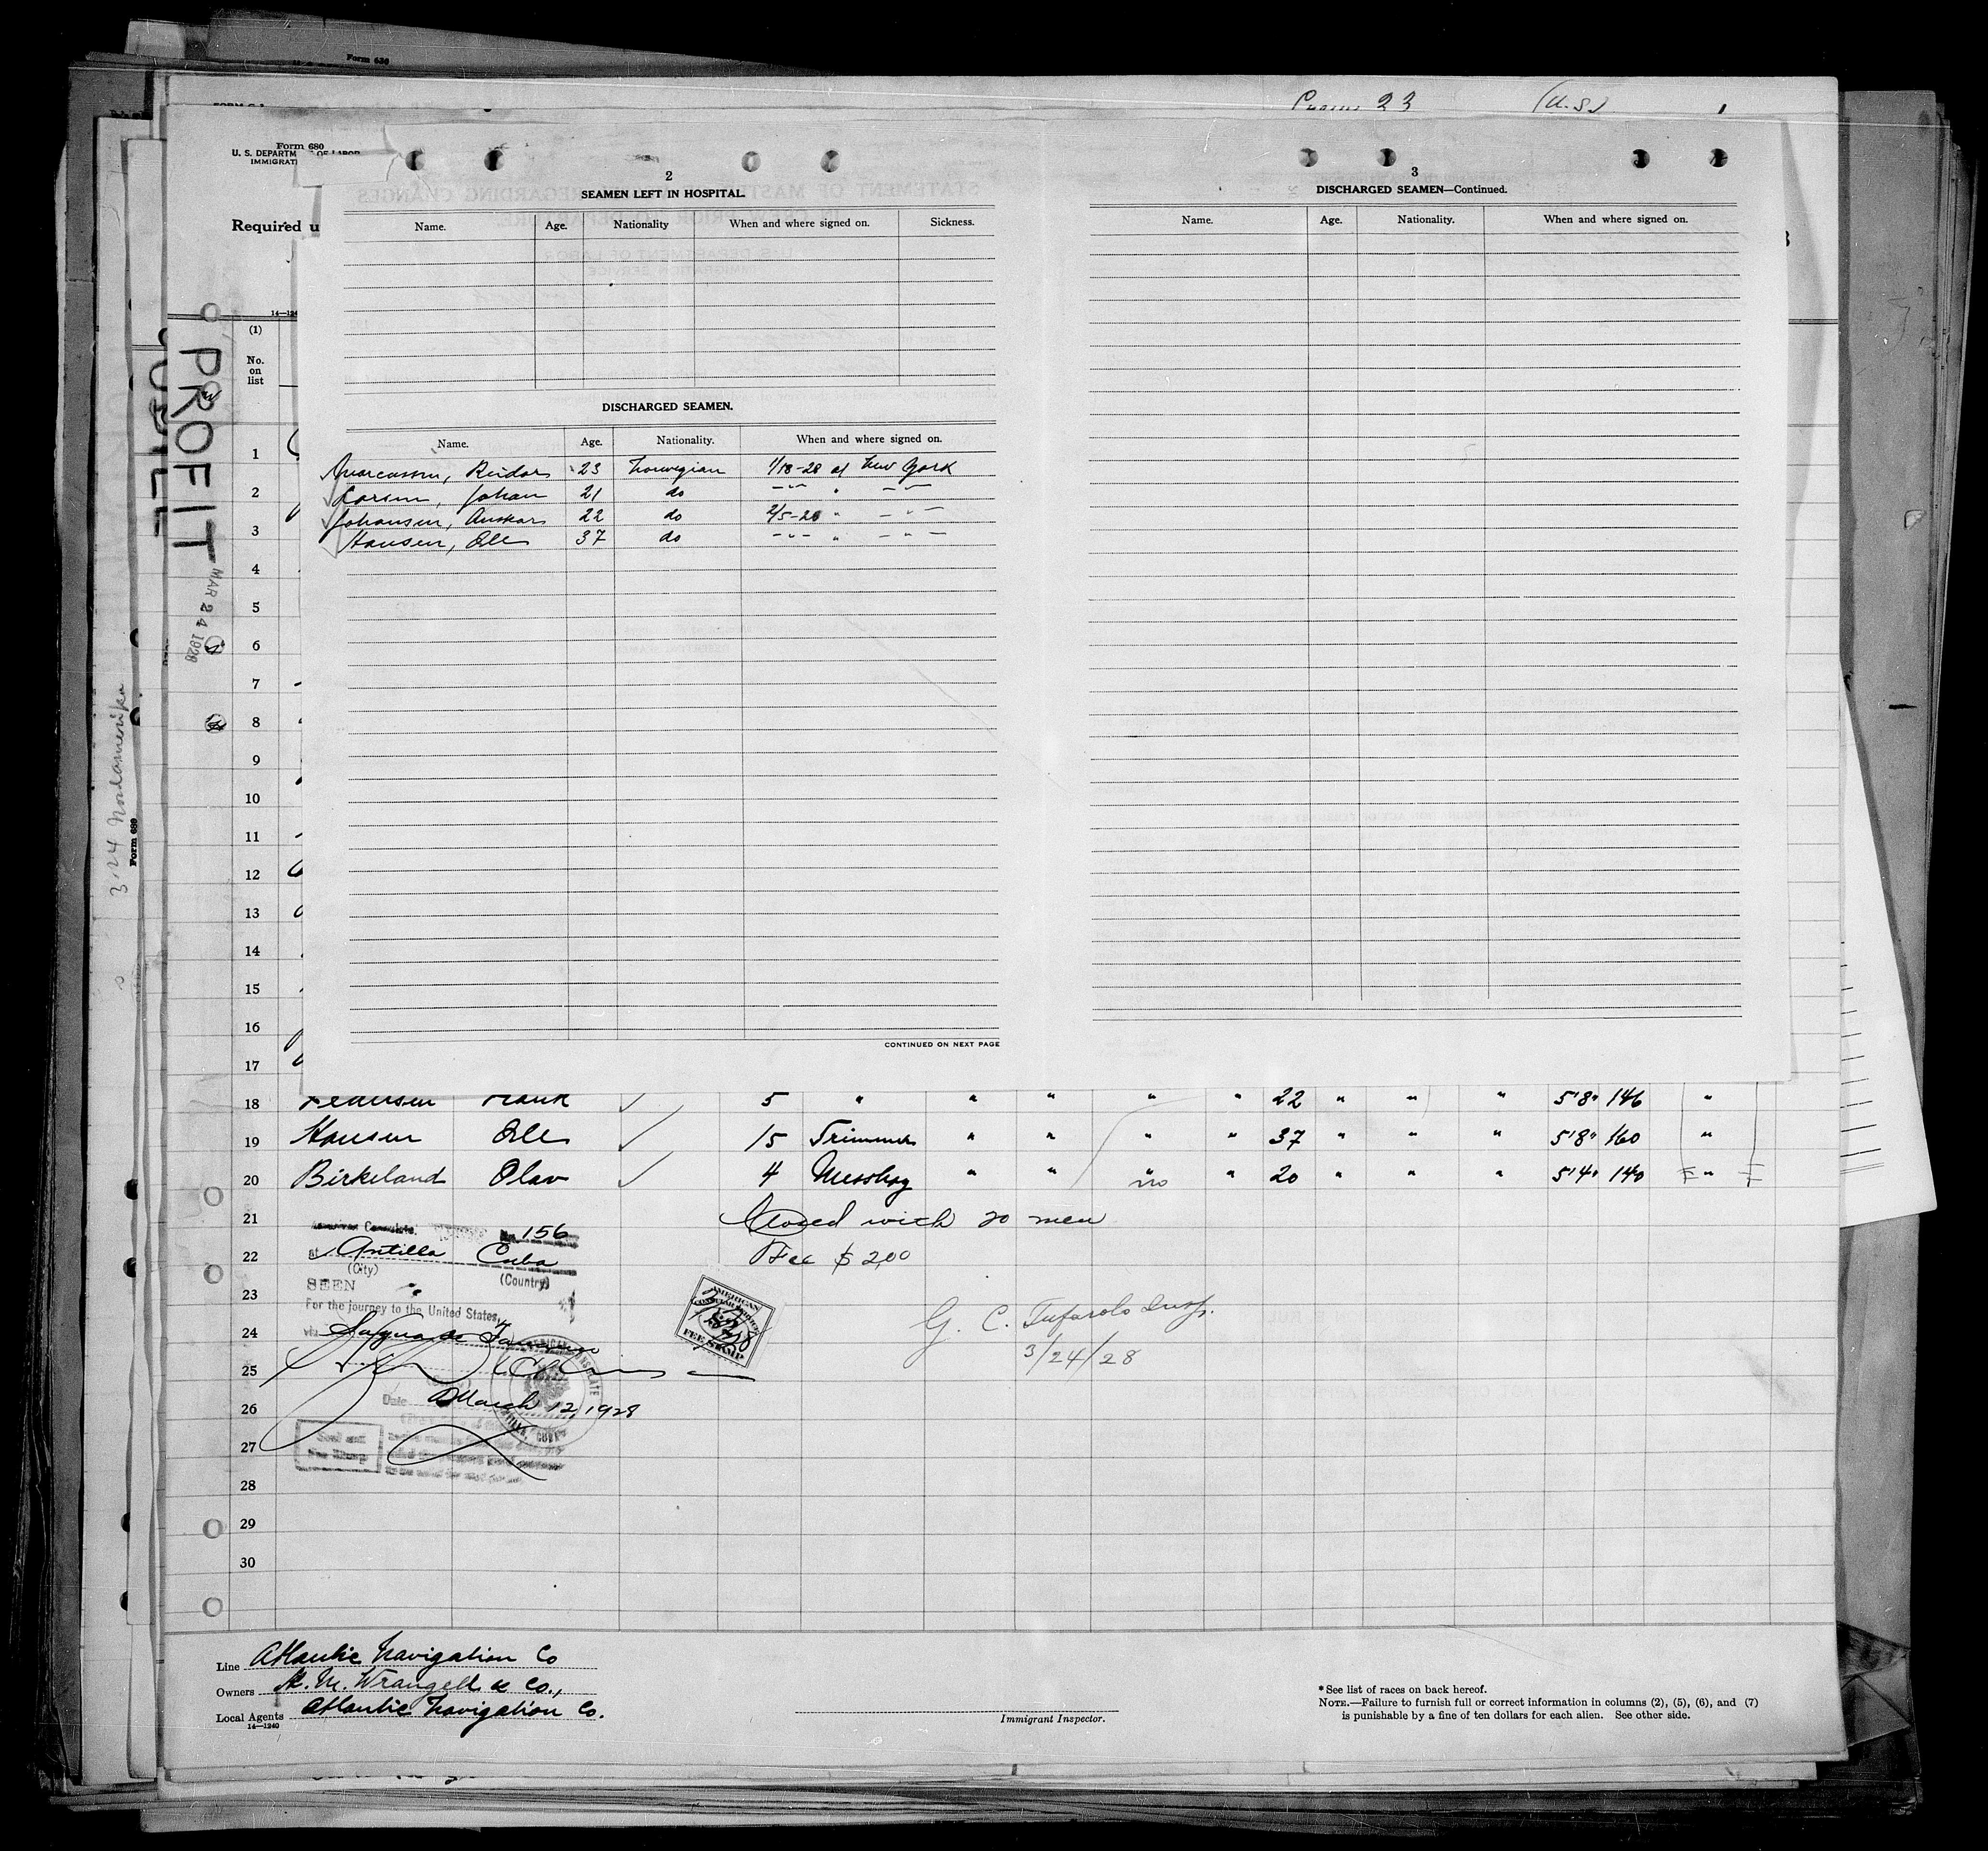 Form 630
23 (U.S.)
Form 680
U. S. DEPARTM OF LABOR
IMMIGRATI
Required u
14—124
(1)
No.
on
list
PROFIT
MAR 24 1928
3.24 Nordamerika
Form 689
2
SEAMEN LEFT IN HOSPITAL.
Name. Age. Nationality When and where signed on. Sickness.
DISCHARGED SEAMEN.
Name. Age. Nationality. When and where signed on.
Reidar 23 Norwegian 1/18-28 at New York
Larsen, Johan 21 do -"- " -"-
Johansen, Auskar 22 do 2/5-28 " -"-
Hansen, Ole 37 do -"- " -"-
CONTINUED ON NEXT PAGE
3
DISCHARGED SEAMEN—Continued.
Name. Age. Nationality. When and where signed on.
1
2
3
4
5
6
7
8
9
10
11
12
13
14
15
16
17
18 Pedersen Hauk ✓ 5 " " " " " 22 " " " 5'8" 146 "
19 Hansen Ole ✓ 15 Trimmer " " " " 37 " " " 5'8" 160 "
20 Birkeland Olav ✓ 4 Messboy " " " no " 20 " " " 5'4" 140 "
21 Closed with 20 men
22 Fee $2.00
23
24
25
26
27
28
29
30
American Consulate. No. 156
at Antilla Cuba
(City) (Country)
SEEN
For the journey to the United States,
via Sagua de Tanamo
Date March 12, 1928
Seal and
Fee Stamp
AMERICAN
FEE STAMP
G. C. Tufarolo Insp.
3/24/28
Line Atlantic Navigation Co
Owners H. M. Wrangell & Co.,
Local Agents Atlantic Navigation Co.
14—1240
Immigrant Inspector.
* See list of races on back hereof.
NOTE.—Failure to furnish full or correct information in columns (2), (5), (6), and (7)
is punishable by a fine of ten dollars for each alien. See other side.